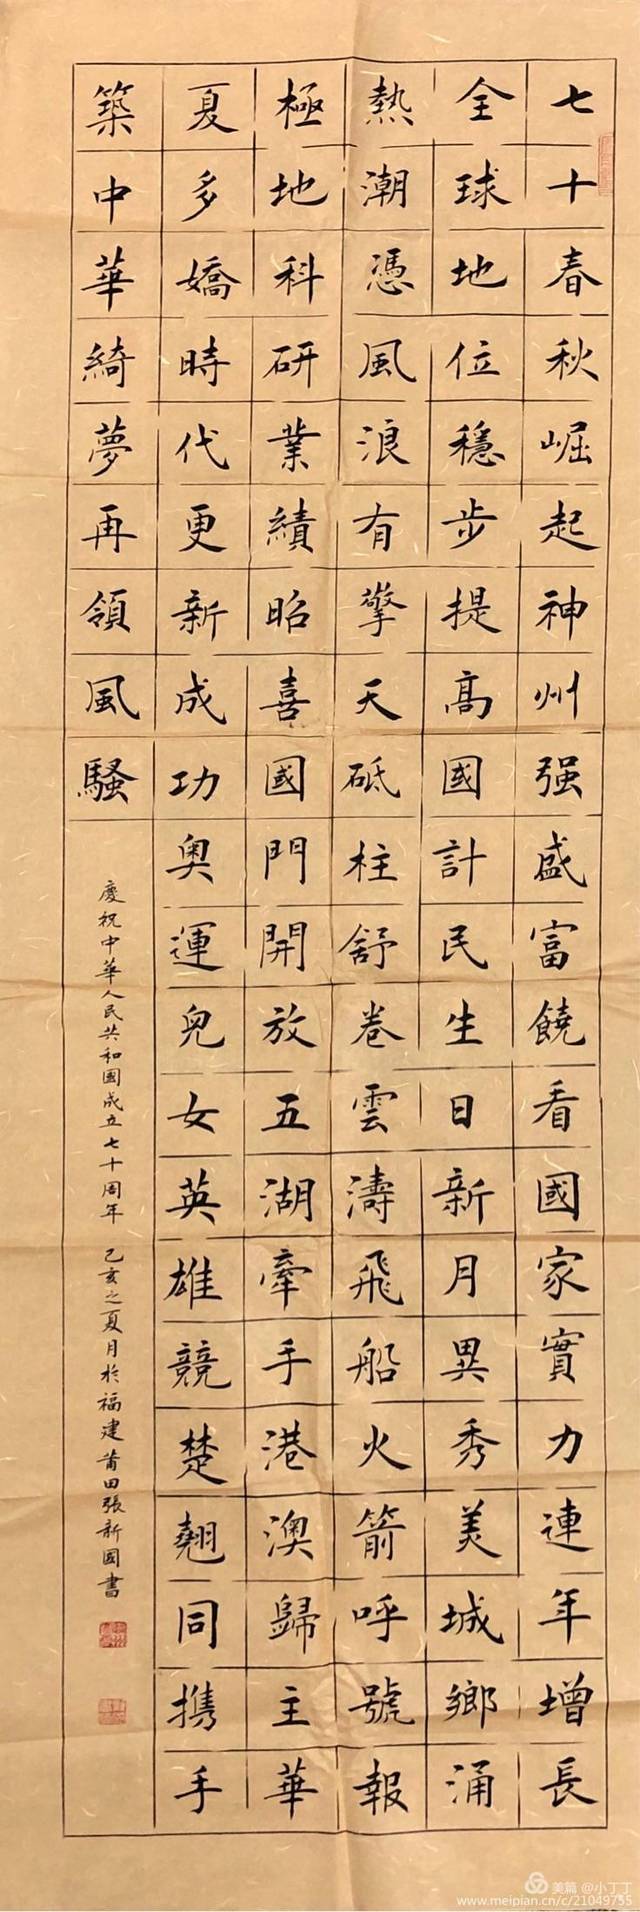 七十春秋崛起神州强盛富饒看國家實力連年增長
全球地位穩步提高國計民生日新月異秀美城鄉涌
熱潮憑風浪有擎天砥柱舒卷雲濤飛船火箭呼號報
極地科研業績昭喜國門開放五湖牽手港澳歸主華
夏多嬌時代更新成功奧運兒女英雄競楚翹同携手
築中華綺夢再領風騷
慶祝中華人民共和國成立七十周年 己亥之夏月於福建莆田張新國書
美篇 @小丁丁
www.meipian.cn/c/21049755